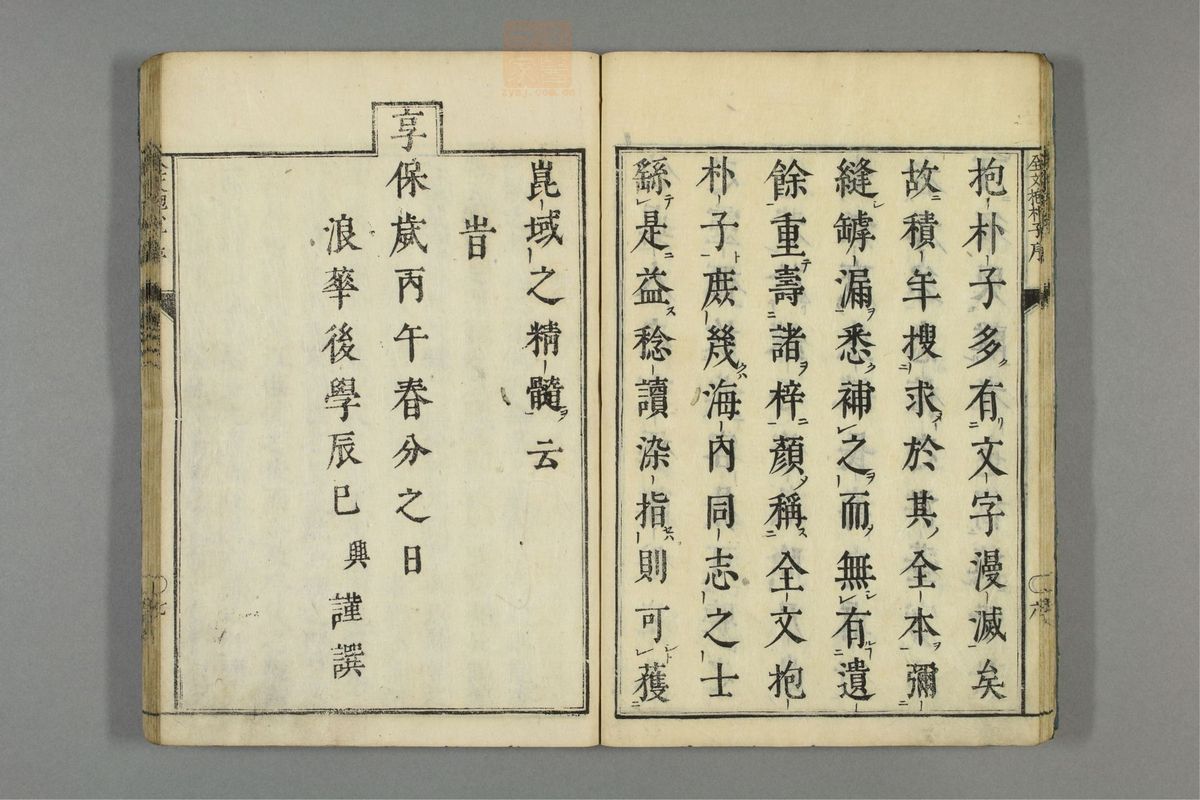 全文抱朴子序
抱朴子多有文字漫滅矣
故積年搜求於其全本彌
縫罅漏悉補之而無有遺
餘重壽諸梓顏稱全文抱
朴子庶幾海內同志之士
繇是益稔讀染指則可獲
六
崑域之精髓云
旹
享保歲丙午春分之日
浪華後學辰巳興謹譔
七
zysj.com.cn